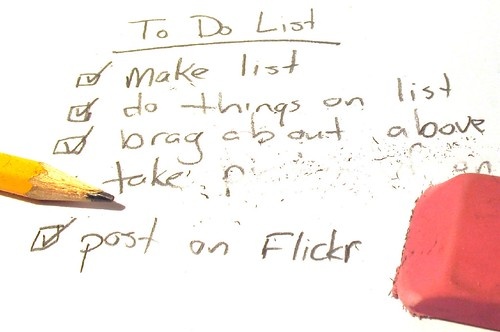 To Do List
make list
do things on list
brag about above
take
post on Flickr